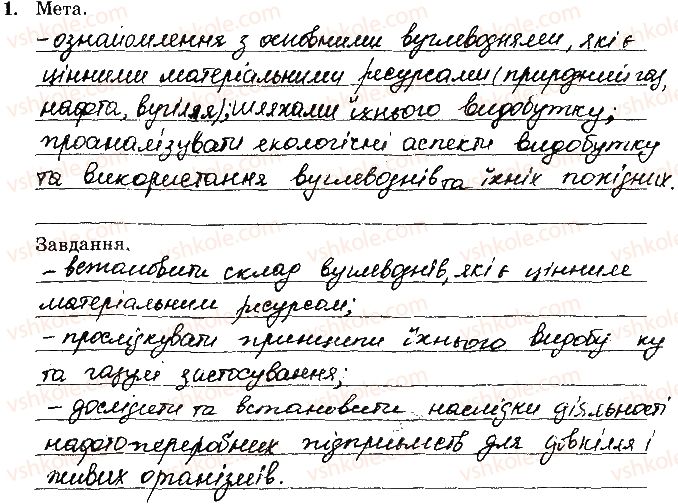 1. Мета.
- ознайомлення з основними вуглеводнями, які є
цінними матеріальними ресурсами (природний газ,
нафта, вугілля); шляхами їхнього видобутку;
проаналізувати екологічні аспекти видобутку
та використання вуглеводнів та їхніх похідних.
Завдання.
- встановити склад вуглеводнів, які є цінним
матеріальним ресурсом;
- прослідкувати принципи їхнього видобу ку
та галузи застосування;
- дослідити та встановити наслідки діяльності
нафтопереробних підприємств для довкілля і
живих організмів.